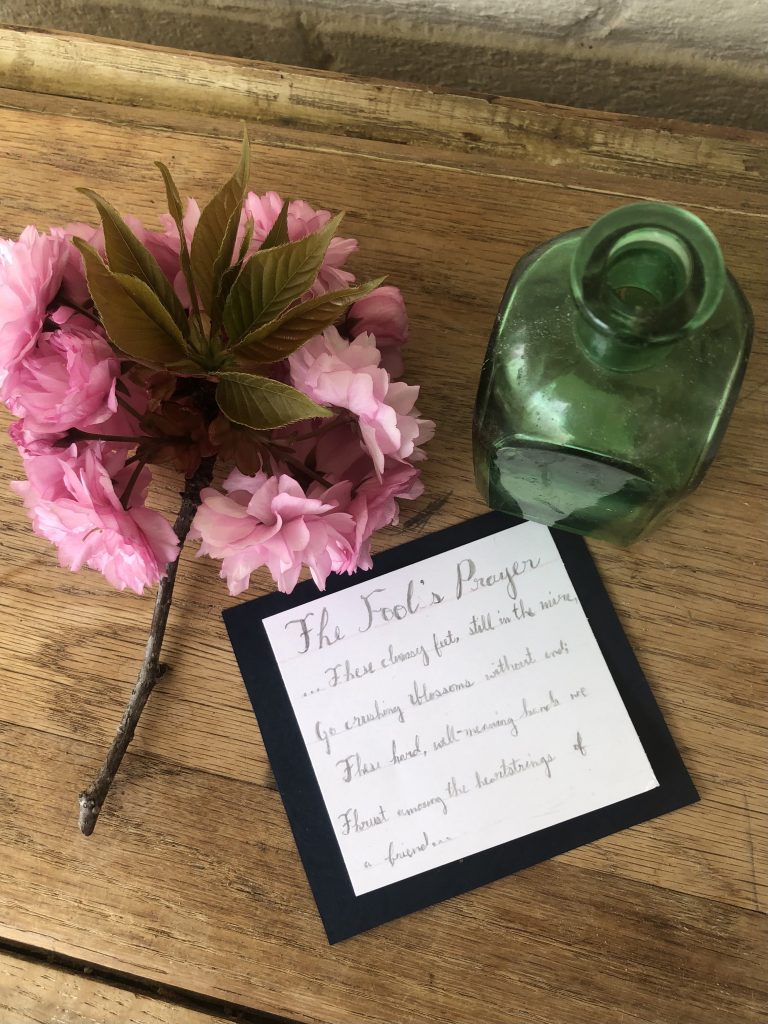 The Fool's Prayer
... These clumsy feet, still in the mire,
Go crushing blossoms without end;
These hard, well-meaning hands we
Thrust among the heartstrings of
a friend...